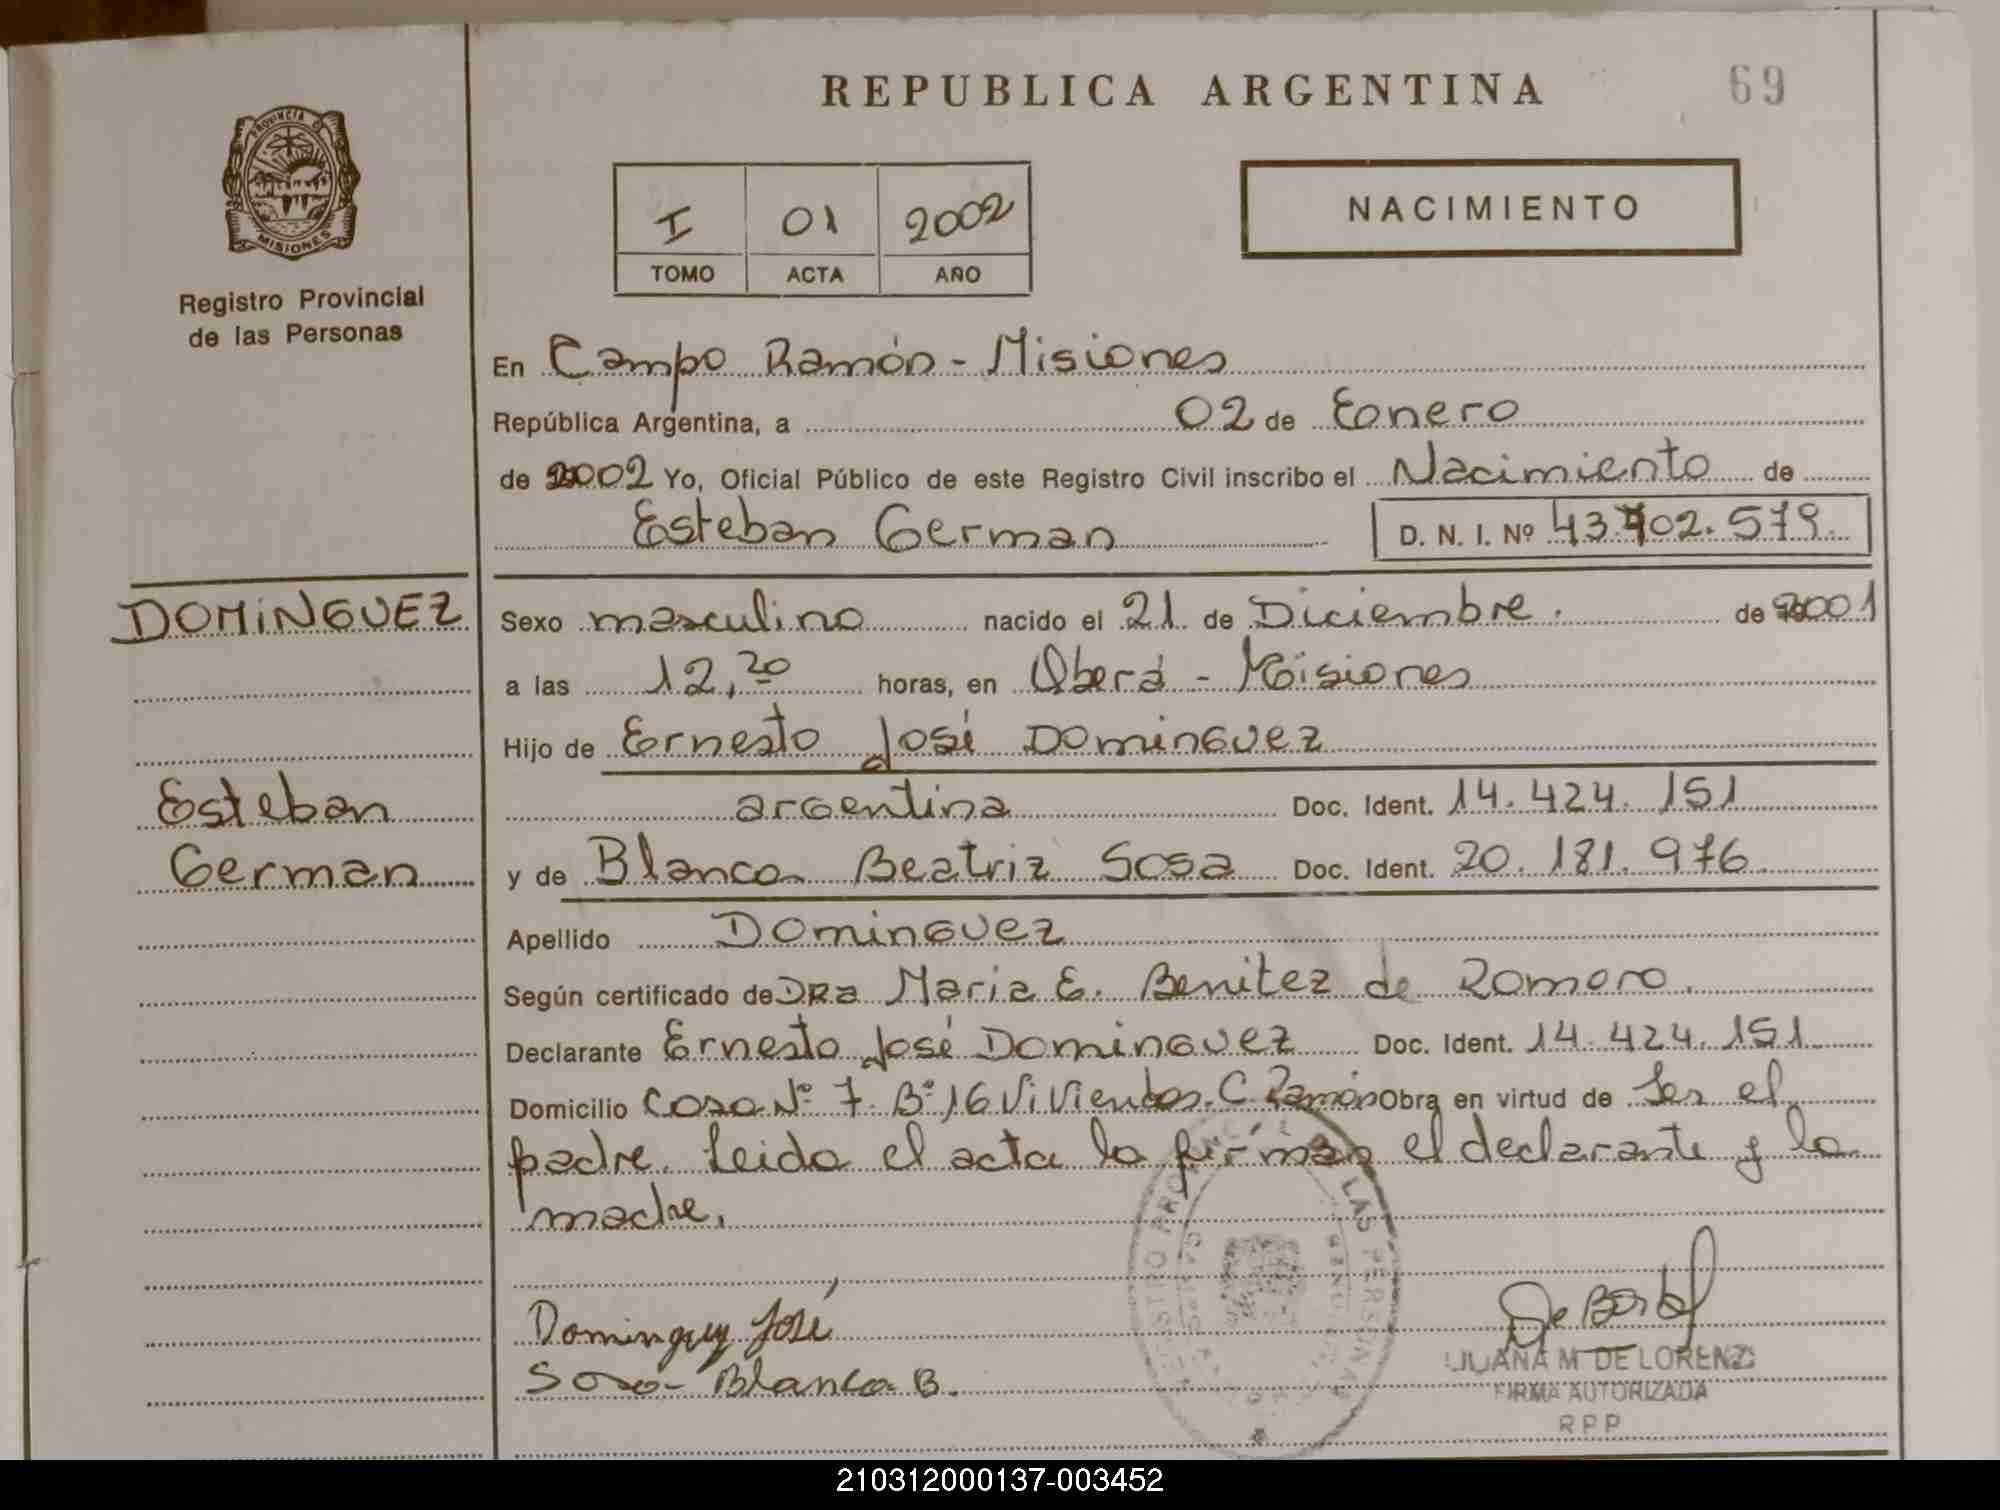 REPUBLICA ARGENTINA
69
PROVINCIA DE
MISIONES
Registro Provincial
de las Personas
I 01 2002
TOMO ACTA AÑO
NACIMIENTO
En Campo Ramón - Misiones
República Argentina, a 02 de Enero
de 2002 Yo, Oficial Público de este Registro Civil inscribo el Nacimiento de
Esteban German D. N. I. Nº 43.702.579.
DOMINGUEZ
Esteban
German
Sexo masculino nacido el 21 de Diciembre. de 2001
a las 12,20 horas, en Oberá - Misiones
Hijo de Ernesto José Dominguez
argentina Doc. Ident. 14.424.151
y de Blanca Beatriz Sosa Doc. Ident. 20.181.976.
Apellido Dominguez
Según certificado de DRa Maria E. Benitez de Romero.
Declarante Ernesto José Dominguez Doc. Ident. 14.424.151
Domicilio Casa Nº 7. Bº 16 Viviendas. C. Ramón Obra en virtud de Ser el
padre. Leida el acta la firman el declarante y la
madre.
Dominguez José
Sosa Blanca B.
JUANA M DE LORENZI
FIRMA AUTORIZADA
RPP
210312000137-003452